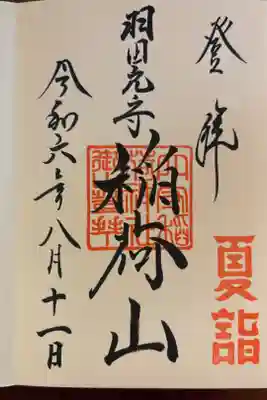 登拝
夏詣
羽田穴守
稲荷山
令和六年八月十一日